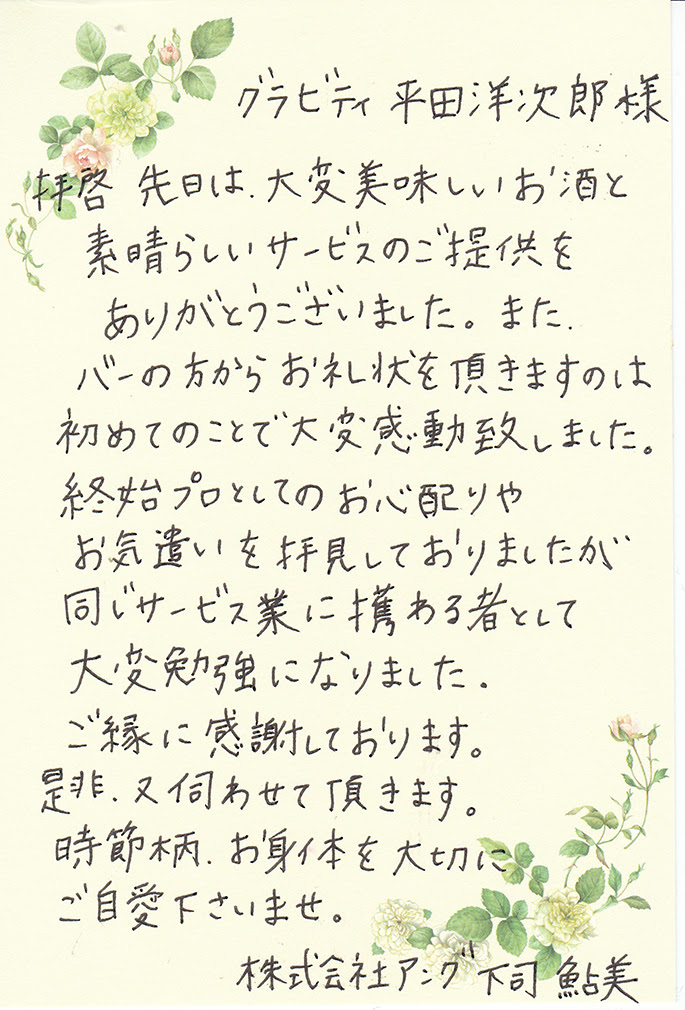 グラビティ 平田洋次郎様
拝啓 先日は、大変美味しいお酒と
素晴らしいサービスのご提供を
ありがとうございました。また、
バーの方からお礼状を頂きますのは
初めてのことで大変感動致しました。
終始プロとしてのお心配りや
お気遣いを拝見しておりましたが
同じサービス業に携わる者として
大変勉強になりました。
ご縁に感謝しております。
是非、又伺わせて頂きます。
時節柄、お身体を大切に
ご自愛下さいませ。
株式会社アング 下司 鮎美